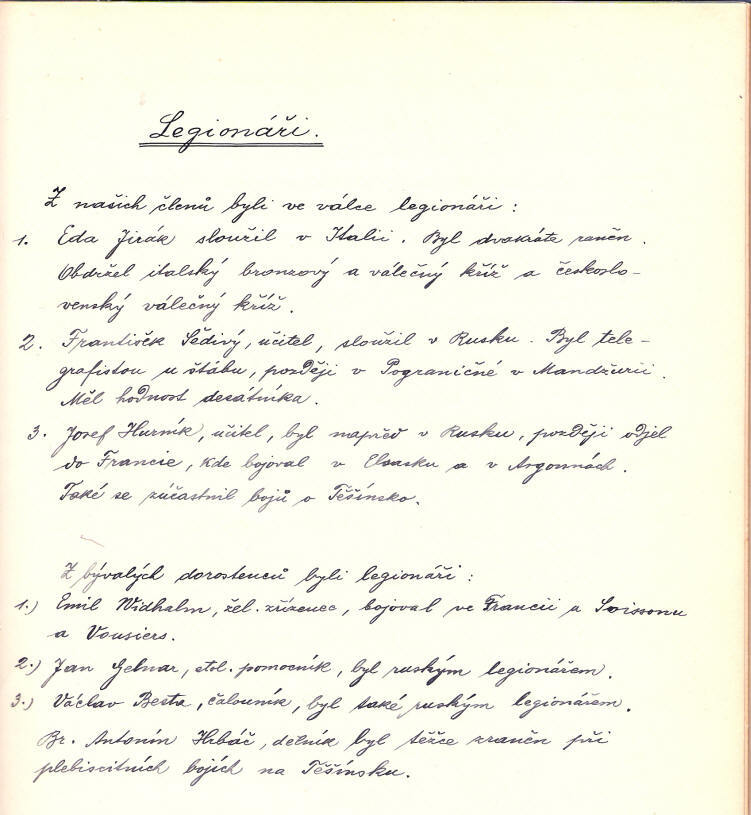 Legionáři.
Z našich členů byli ve válce legionáři :
1. Eda Jirák sloužil v Italii. Byl dvakráte raněn.
Obdržel italský bronzový a válečný kříž a českoslo-
venský válečný kříž.
2. František Šedivý, učitel, sloužil v Rusku. Byl tele-
grafistou u štábu, později v Pograničné v Mandžurii.
Měl hodnost desátníka.
3. Josef Hurník, učitel, byl napřed v Rusku, později odjel
do Francie, kde bojoval v Elsasku a v Argonnách.
Také se zúčastnil bojů o Těšínsko.
Z bývalých dorostenců byli legionáři :
1.) Emil Widhalm, žel. zřízenec, bojoval ve Francii a Soissonu
a Vousiers.
2.) Jan Gelnar, stol. pomocník, byl ruským legionářem.
3.) Václav Besta, čalouník, byl také ruským legionářem.
Br. Antonín Hrbáč, dělník byl těžce zraněn při
plebiscitních bojích na Těšínsku.